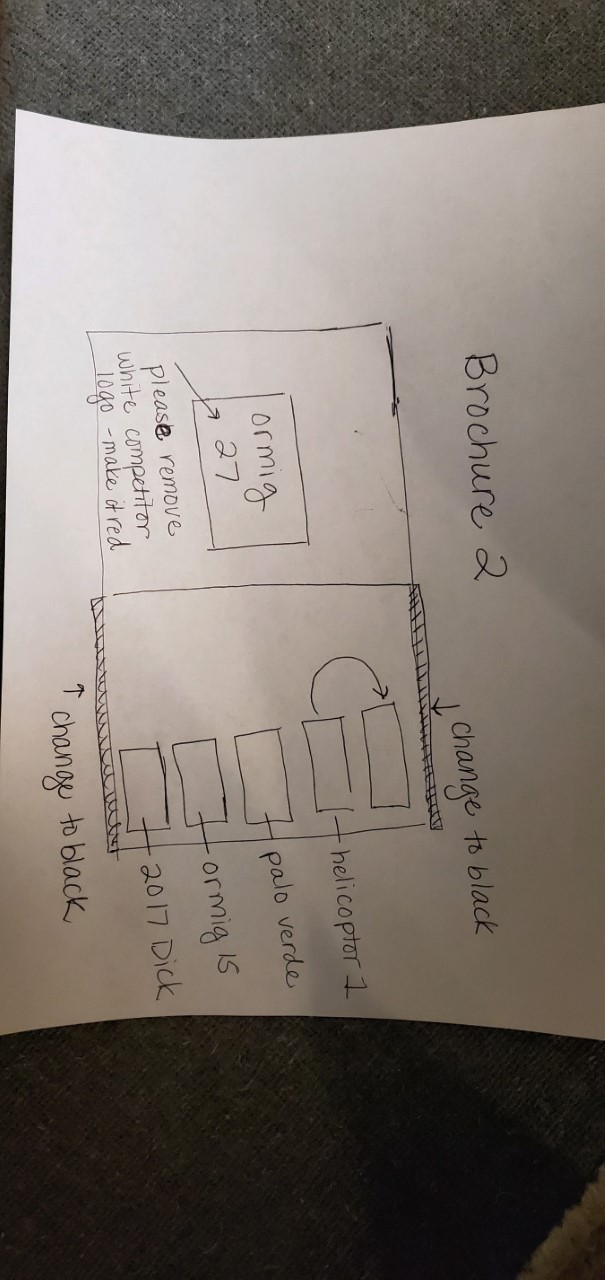 Brochure 2
↓ change to black
ormig
27
please remove
white competitor
logo - make it red
helicoptor 1
palo verde
ormig 15
2017 Dick
↑ change to black